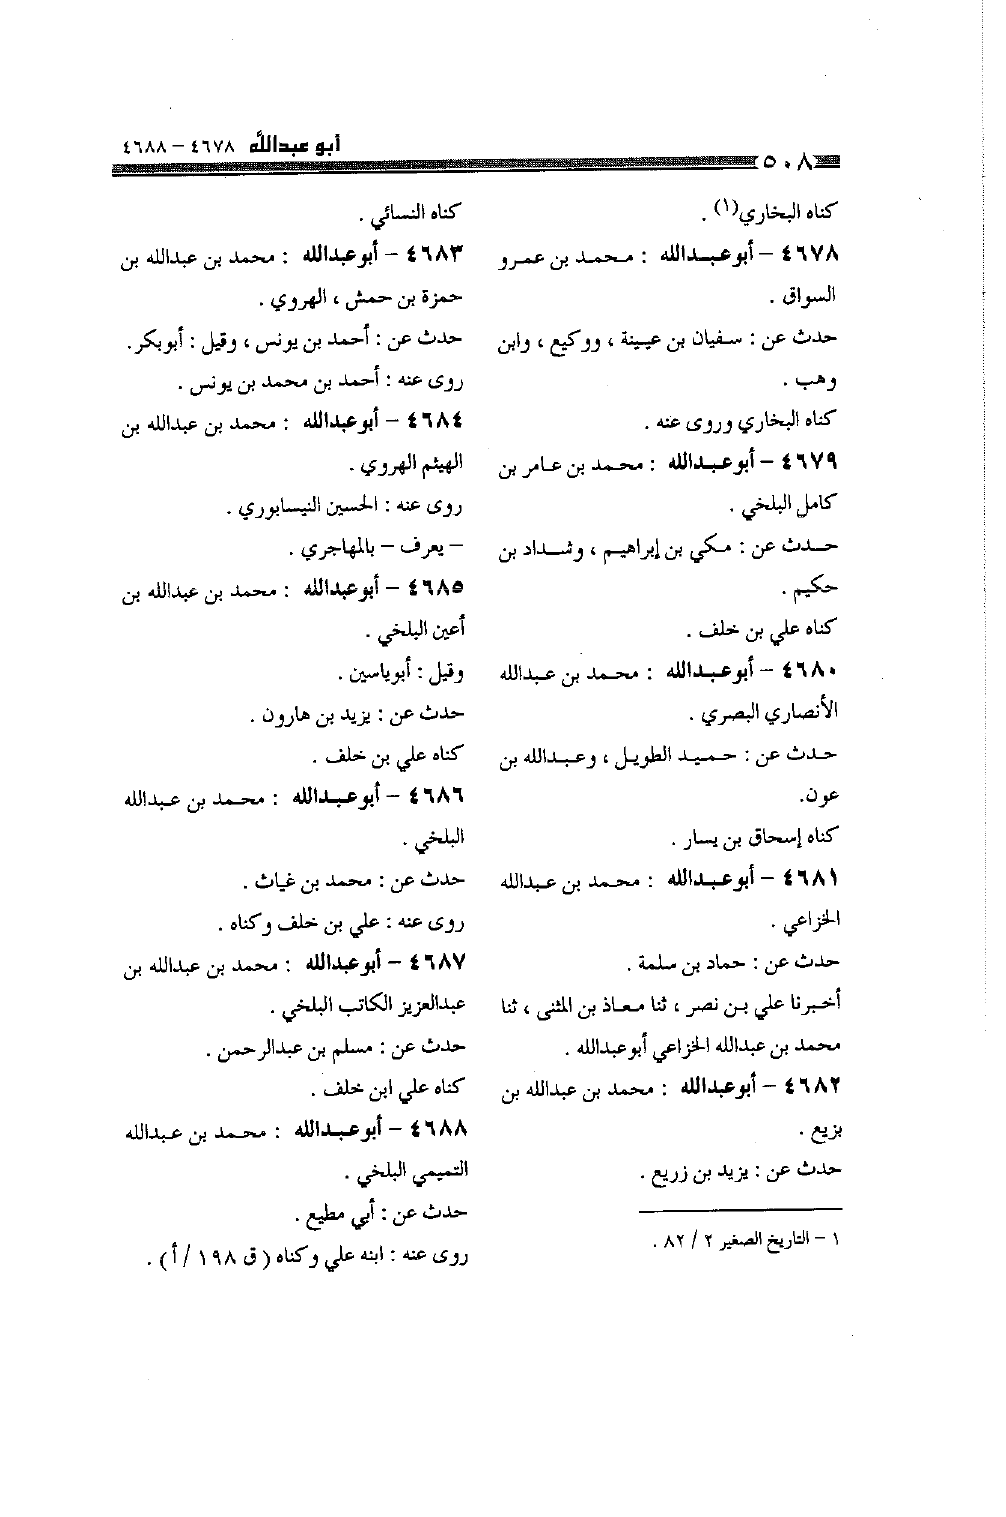 أبو عبدالله ٤٦٧٨ – ٤٦٨٨
٥٠٨
كناه البخاري(١) .
٤٦٧٨ – أبو عبدالله : محمد بن عمرو
السواق .
حدث عن : سفيان بن عيينة ، ووكيع ، وابن
وهب .
كناه البخاري وروى عنه .
٤٦٧٩ – أبو عبدالله : محمد بن عامر بن
كامل البلخي .
حدث عن : مكي بن إبراهيم ، وشداد بن
حكيم .
كناه علي بن خلف .
٤٦٨٠ – أبو عبدالله : محمد بن عبدالله
الأنصاري البصري .
حدث عن : حميد الطويل ، وعبدالله بن
عون.
كناه إسحاق بن يسار .
٤٦٨١ – أبو عبدالله : محمد بن عبدالله
الخزاعي .
حدث عن : حماد بن سلمة .
أخبرنا علي بن نصر ، ثنا معاذ بن المثنى ، ثنا
محمد بن عبدالله الخزاعي أبو عبدالله .
٤٦٨٢ – أبو عبدالله : محمد بن عبدالله بن
بزيع .
حدث عن : يزيد بن زريع .
١ – التاريخ الصغير ٢ / ٨٢ .
كناه النسائي .
٤٦٨٣ – أبو عبدالله : محمد بن عبدالله بن
حمزة بن حمش ، الهروي .
حدث عن : أحمد بن يونس ، وقيل : أبوبكر.
روى عنه : أحمد بن محمد بن يونس .
٤٦٨٤ – أبو عبدالله : محمد بن عبدالله بن
الهيثم الهروي .
روى عنه : الحسين النيسابوري .
– يعرف – بالمهاجري .
٤٦٨٥ – أبو عبدالله : محمد بن عبدالله بن
أعين البلخي .
وقيل : أبو ياسين .
حدث عن : يزيد بن هارون .
كناه علي بن خلف .
٤٦٨٦ – أبو عبدالله : محمد بن عبدالله
البلخي .
حدث عن : محمد بن غياث .
روى عنه : علي بن خلف وكناه .
٤٦٨٧ – أبو عبدالله : محمد بن عبدالله بن
عبدالعزيز الكاتب البلخي .
حدث عن : مسلم بن عبدالرحمن .
كناه علي ابن خلف .
٤٦٨٨ – أبو عبدالله : محمد بن عبدالله
التميمي البلخي .
حدث عن : أبي مطيع .
روى عنه : ابنه علي وكناه ( ق ١٩٨ /أ) .